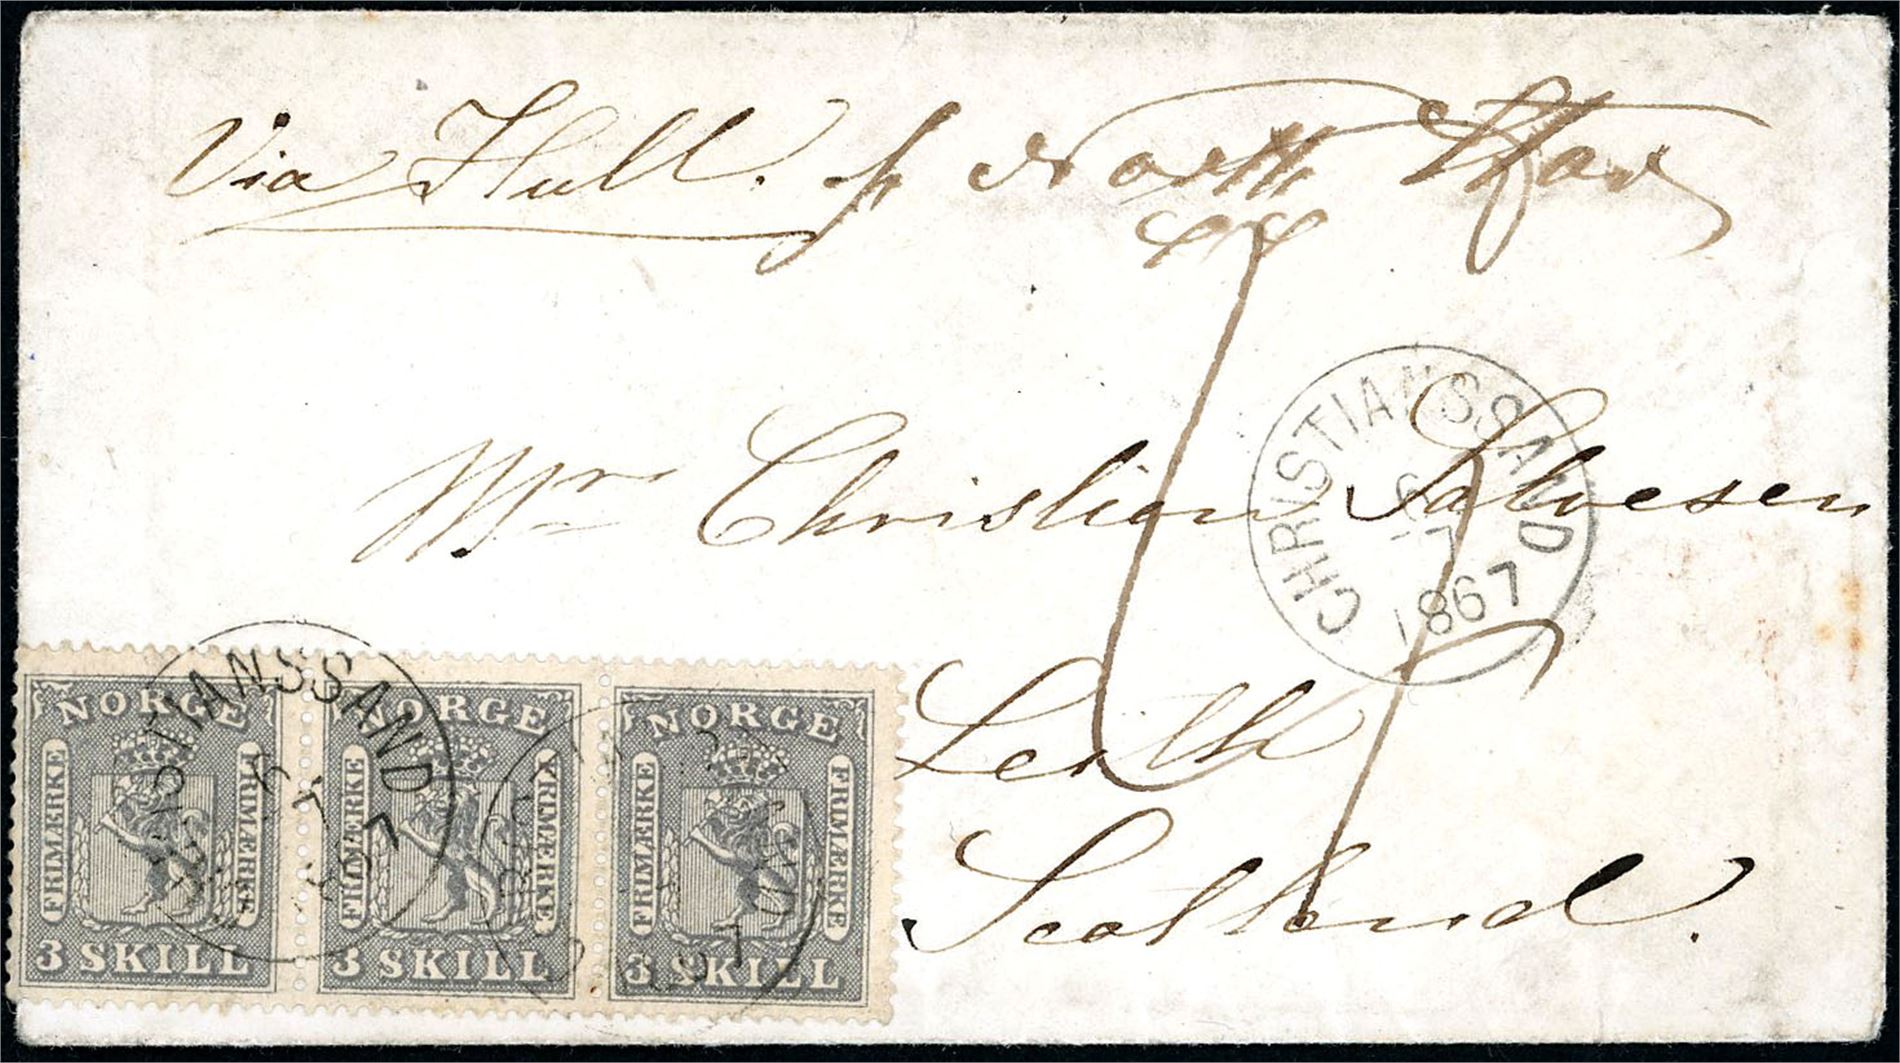 Via Hull. pr North Star
CHRISTIANSSAND
6
7
1867
Mr Christian Salvesen
Leith
Scotland.
NORGE
FRIMÆRKE FRIMÆRKE
3 SKILL
NORGE
FRIMÆRKE FRIMÆRKE
3 SKILL
NORGE
FRIMÆRKE FRIMÆRKE
3 SKILL